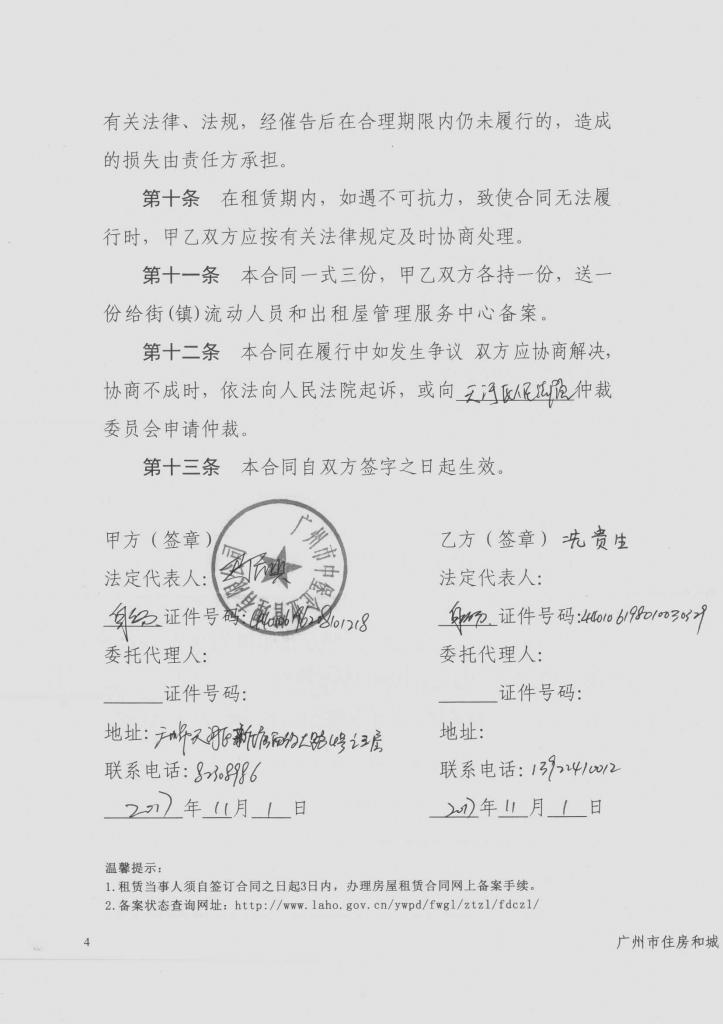 有关法律、法规，经催告后在合理期限内仍未履行的，造成
的损失由责任方承担。
第十条 在租赁期内，如遇不可抗力，致使合同无法履
行时，甲乙双方应按有关法律规定及时协商处理。
第十一条 本合同一式三份，甲乙双方各持一份，送一
份给街(镇)流动人员和出租屋管理服务中心备案。
第十二条 本合同在履行中如发生争议 双方应协商解决，
协商不成时，依法向人民法院起诉，或向 天河区人民法院 仲裁
委员会申请仲裁。
第十三条 本合同自双方签字之日起生效。
甲方（签章）
乙方（签章）冼贵生
广州市中堡企业管理有限公司
法定代表人：
法定代表人：
身份 证件号码：
身份 证件号码：
委托代理人：
委托代理人：
证件号码：
证件号码：
地址：
地址：
联系电话：82308986
联系电话：13922410012
2017年11月1日
2017年11月1日
温馨提示：
1.租赁当事人须自签订合同之日起3日内，办理房屋租赁合同网上备案手续。
2.备案状态查询网址：http://www.laho.gov.cn/ywpd/fwgl/ztzl/fdczl/
4
广州市住房和城